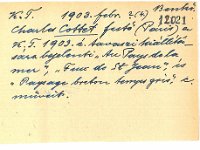 K.T. 1903. febr. 2(?) Benkő
12021
Charles Cottet festő (Paris) a
K.T. 1903. i tavaszi kiállítá-
sára bejelenti "Au Pays de la
mer", "Feux de St. Jean", és
"Paysage breton temps gris", c.
műveit.